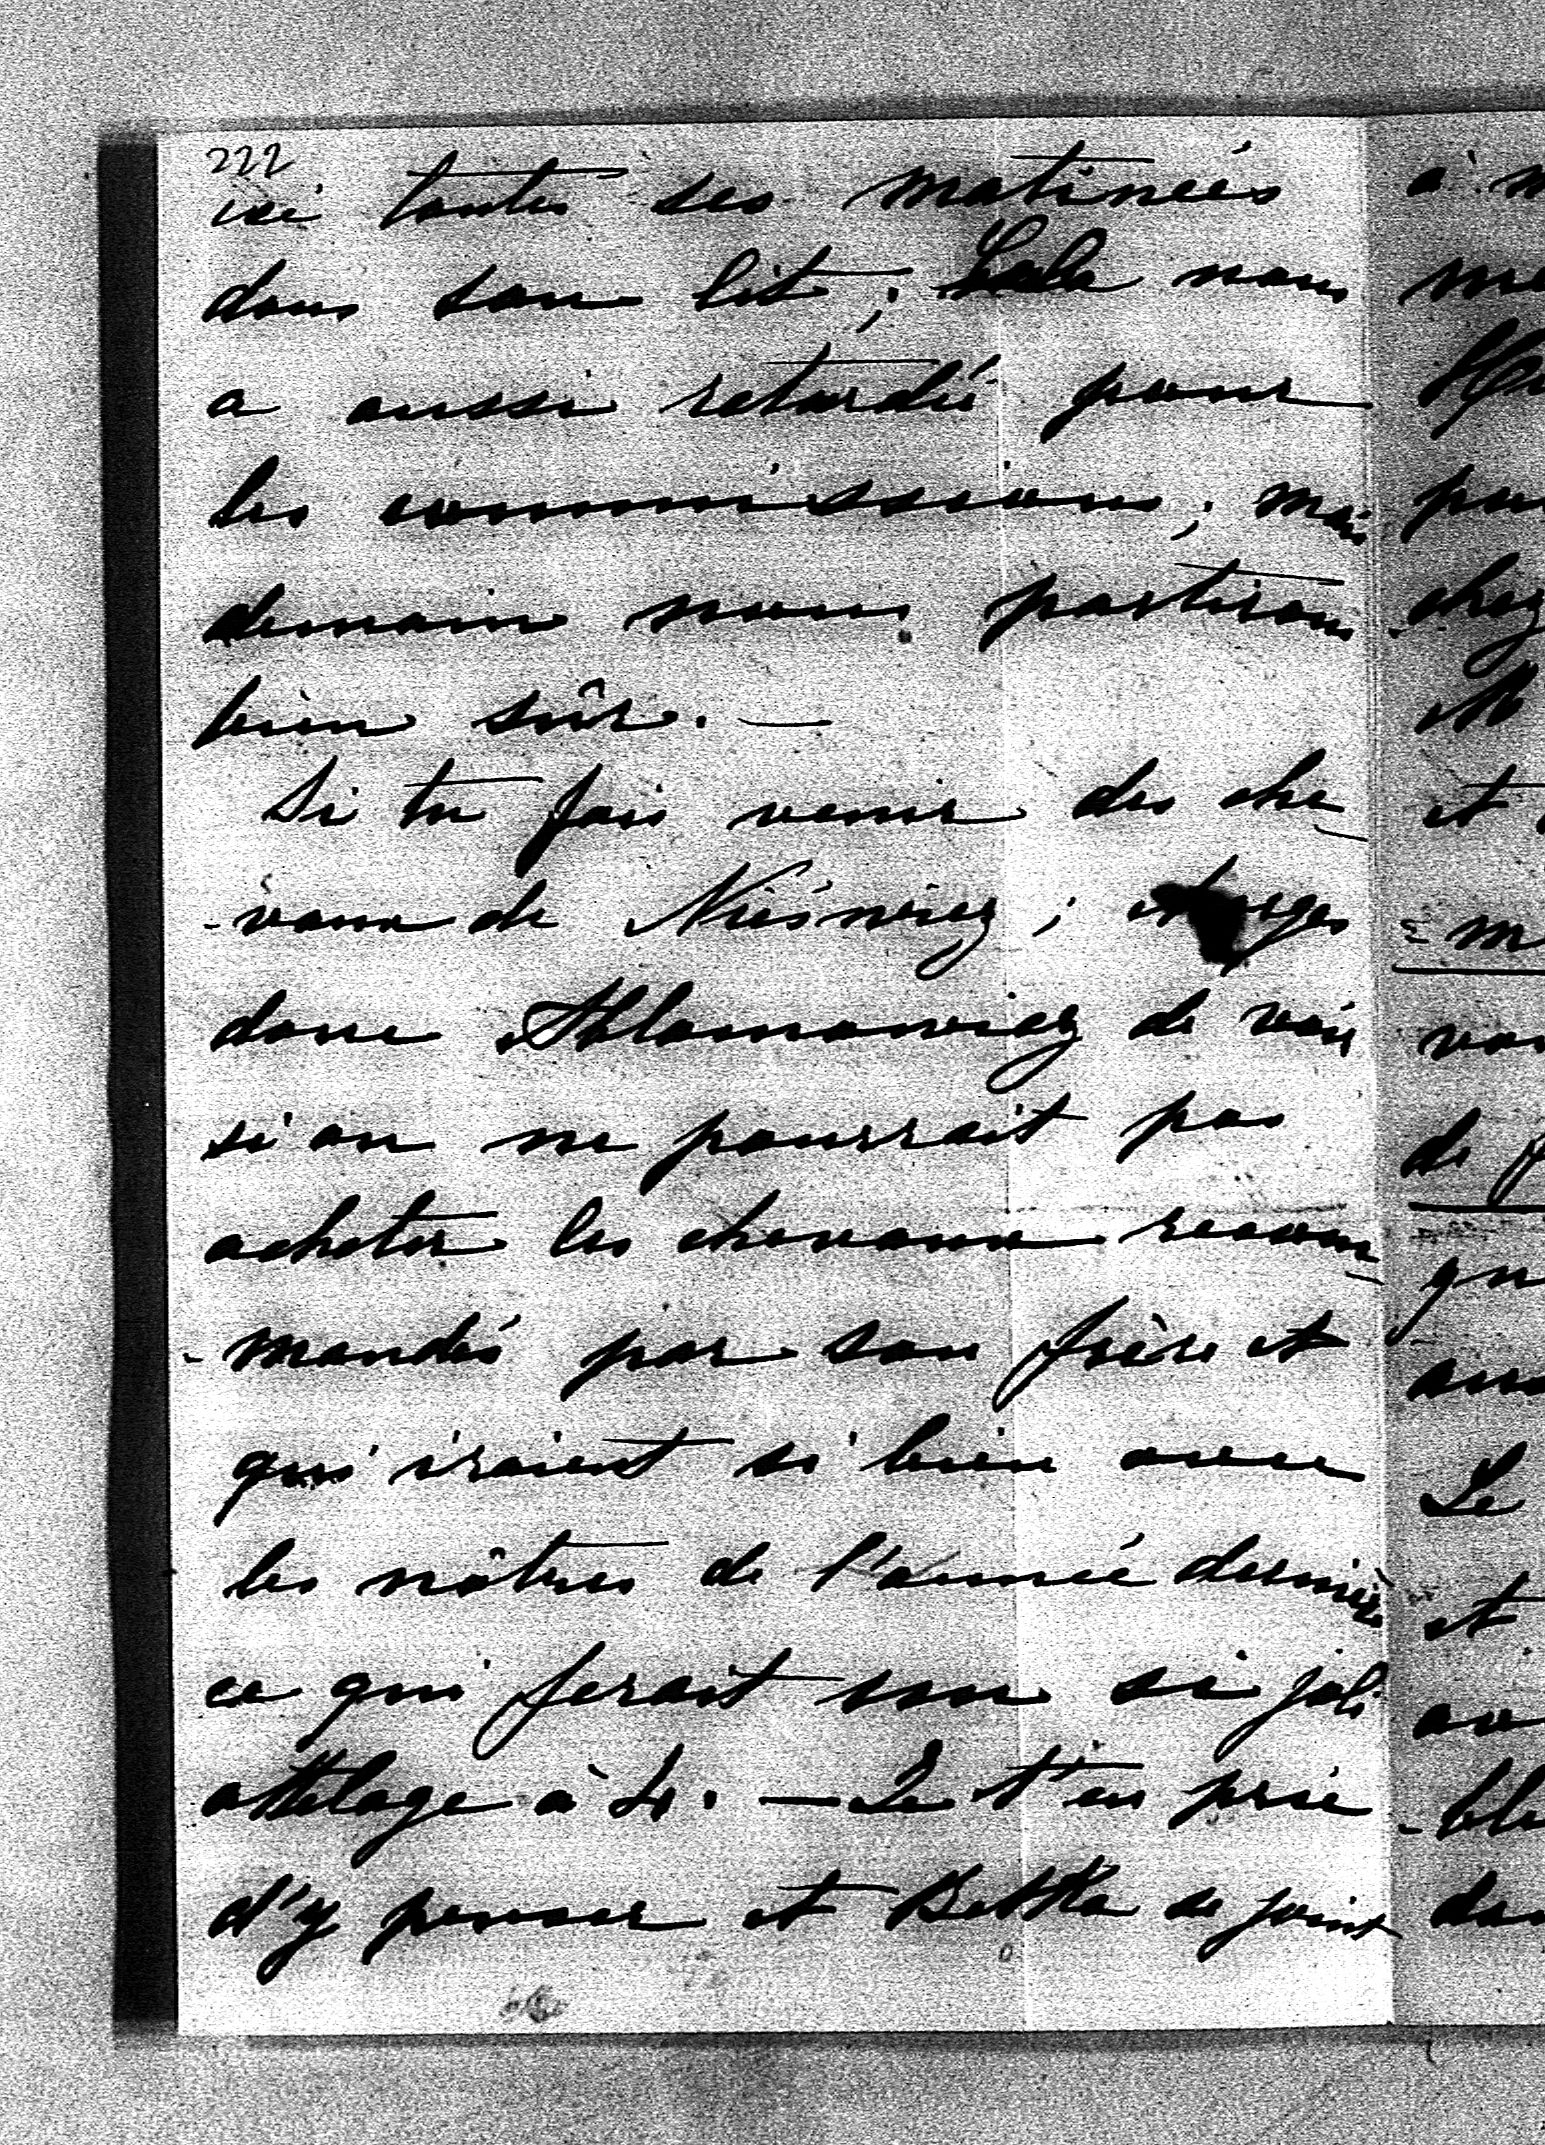 222
ici toutes ses matinées
dans son lit; Lula nous
a aussi retardé pour
les commissions; mais
demain nous partirons
bien sûr. —
Si tu fais venir des che
-vaux de Nieśwież; charges
donc Ablamowicz de voir
si on ne pourrait pas
acheter les chevaux recom
-mandés par son frère et
qui iraient si bien avec
les nôtres de l'année dernière
ce qui ferait un si joli
attelage à 4. — Je t'en prie
d'y penser et Betka se joint